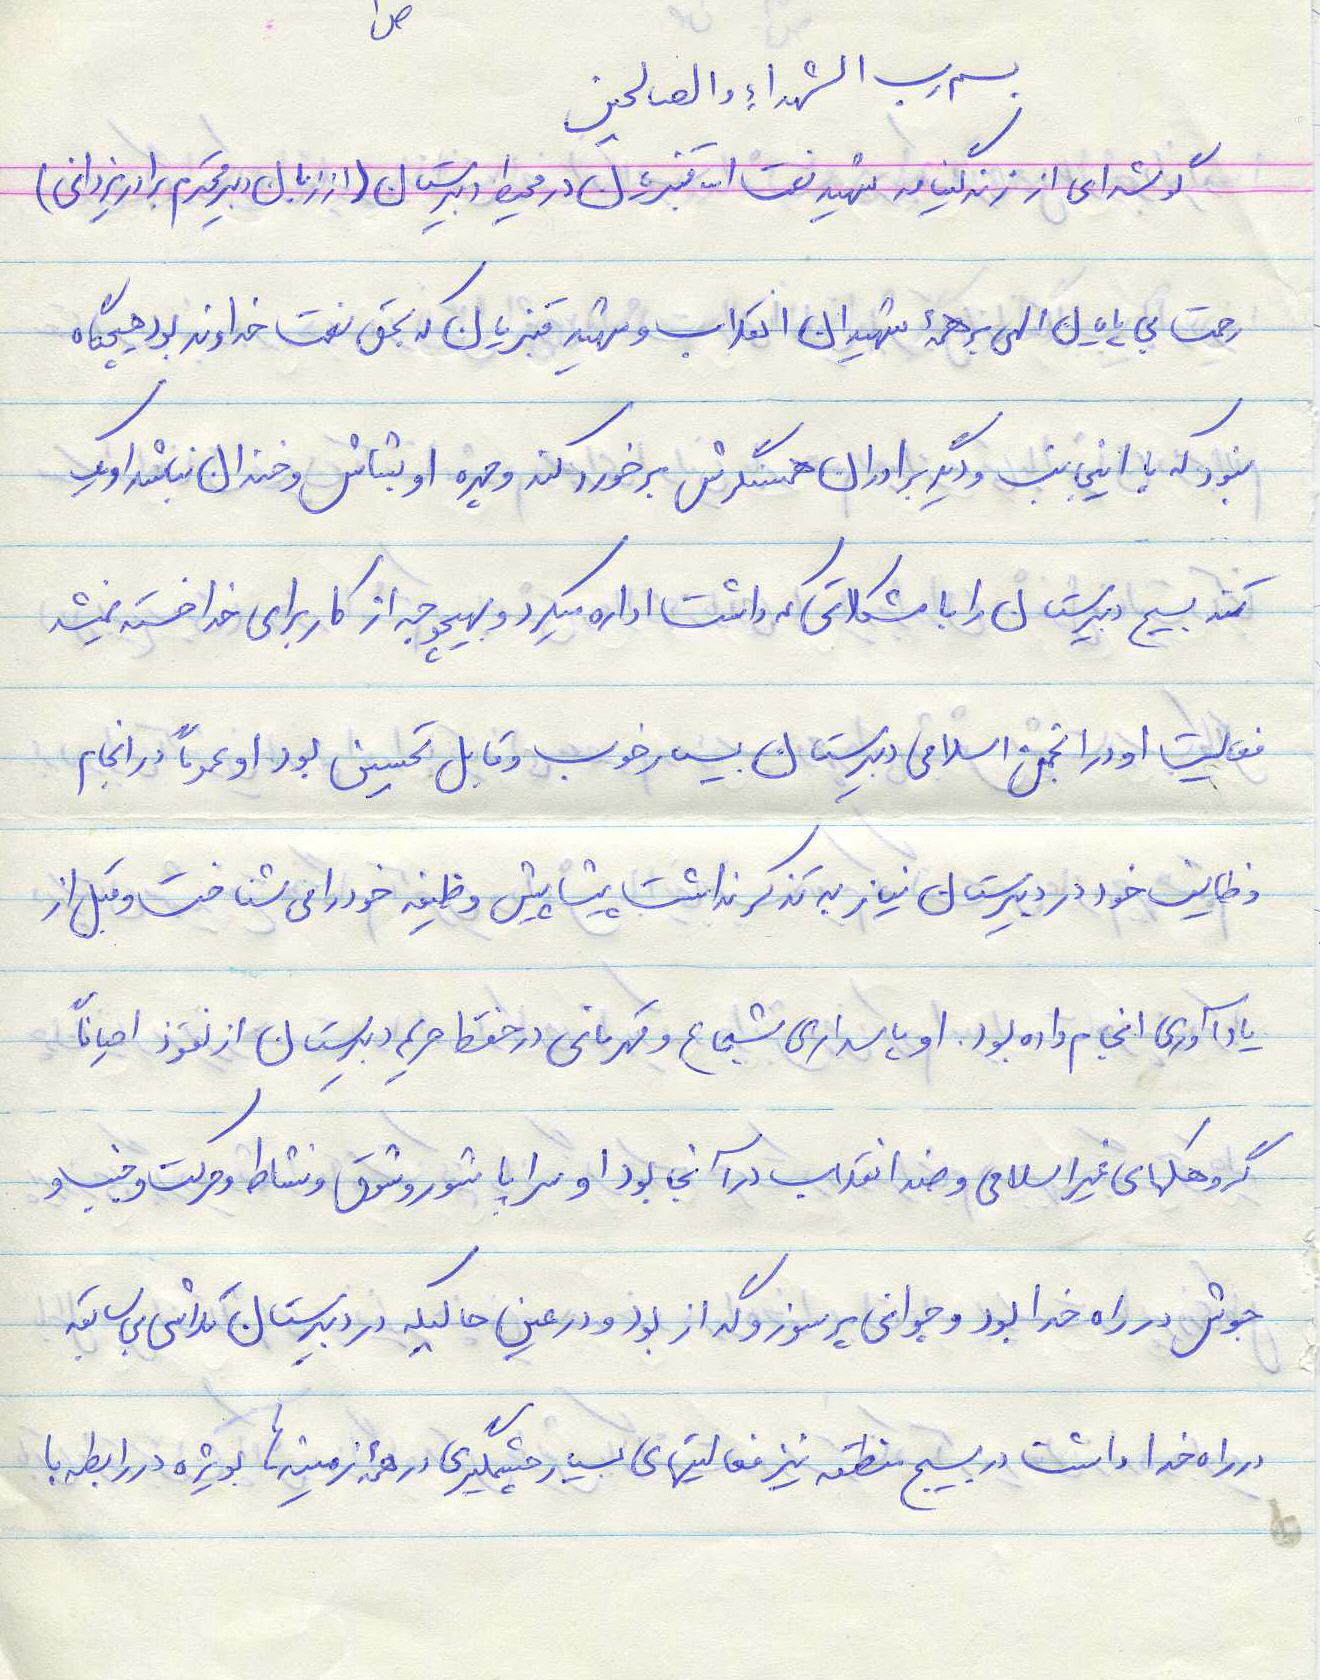 ص ۱
بسم رب الشهداء والصالحین
گوشه‌ای از زندگینامه شهید نعمت اله قنبریان در محیط دبیرستان (از زبان دبیر محترم برادر یزدانی)
رحمت بی پایان الهی بر همهٔ شهیدان انقلاب و شهید قنبریان که بحق نعمت خداوند بود هیچگاه
نبود که با اینجانب و دگیر برادران همسنگرش برخورد کند و چهره او بشاش و خندان نباشد او یک
تنه بسیج دبیرستان را با مشکلاتی که داشت اداره میکرد و بهیچوجه از کار برای خدا خسته نمیشد
فعالیت او در انجمن اسلامی دبیرستان بسیار خوب و قابل تحسین بود او عمدتاً در انجام
وظایف خود در دبیرستان نیاز به تذکر نداشت پیشاپیش وظیفه خود را می شناخت و قبل از
یادآوری انجام داده بود. او پاسداری شجاع و قهرمانی در حفظ حریم دبیرستان از نفوذ احیاناً
گروهکهای غیر اسلامی و ضد انقلاب در آنجا بود او سراپا شور و شوق و نشاط و حرکت و جنب و
جوش در راه خدا بود و جوانی پر سوز و گداز بود و در عین حالیکه در دبیرستان تلاشی بی سابقه
در راه خدا داشت در بسیج منطقه نیز فعالیتهای بسیار چشمگیری در همهٔ زمینه‌ها بویژه در رابطه با